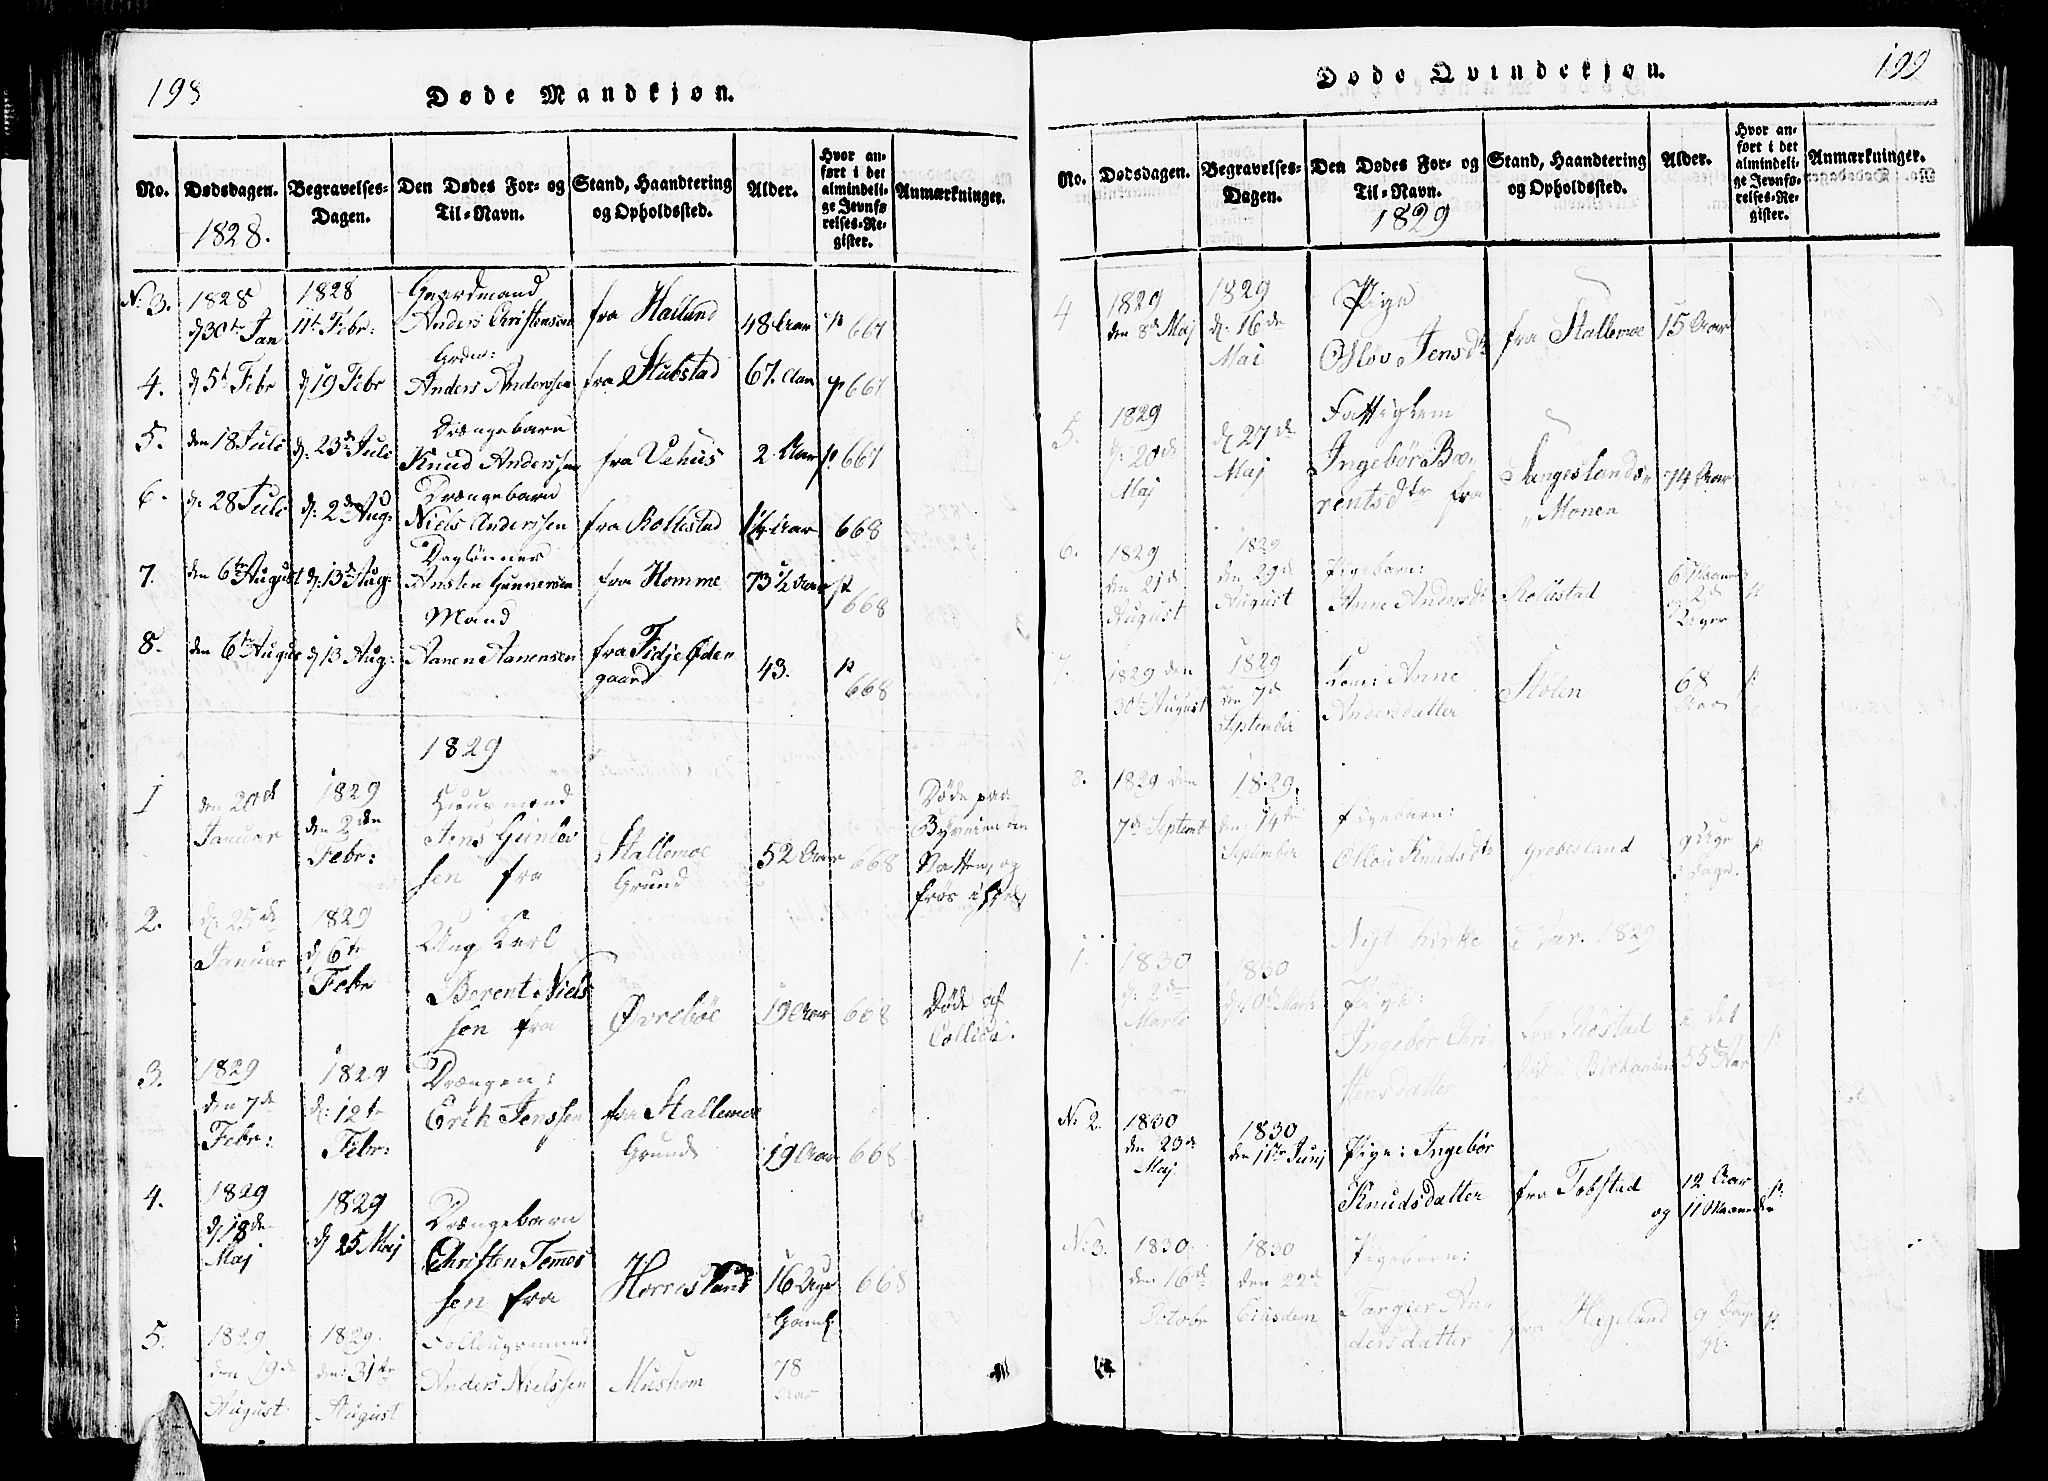 198
Døde Mandkjøn.
No.
Dødsdagen.
1828.
Begravelses-
Dagen.
Den Dødes For- og
Til-Navn.
Stand, Haandtering
og Opholdssted.
Alder.
Hvor an-
ført i det
almindeli-
ge Jevnfø
relses-Re-
gister.
Anmærkninger.
No 3. 1828 1828 Gaardmand
d 30te Jan 11t Febr: Anders Christensen fra Halland 48 Aar p 667
Grdm:
4. d 5t Febr d 19 Febr Anders Anderssen fra Stubstad 67. Aar p 667
Drængebarn
5. den 18 Juli d: 23de Juli Knud Anderssen fra Vehus 2 Aar p 667
Drængebarn
6. d. 28 Juli d: 2den Aug: Niels Anderssen fra Rollestad 1½ Aar 668
Daglønner
7. den 6te August d: 13de Aug: Ansten Gunnersen fra Homme 73 1/2 Aar p 668
Mand
8. den 6te August d 13 Aug: Aanen Aanensen fra Fidje Øde
gaard 43. p 668
1829
1 den 20de Januar 1829 den 2den Febr: Huusmand
Jens Gunlev
sen fra Stallemoe Grund 52 Aar 668 Døde paa
Byveien om
Natten, og
frøs ihjel
2. d. 25de Januar 1829 d 6te Febr Ung Karl
Berent Niels
sen fra Øvrebøe 19 Aar 668 Døde af
Collica.
3. 1829 den 7de Febr: 1829 d: 12te Febr: Drængen:
Erik Jenssen fra Stallemoe
Grund 19 Aar 668
4. 1829 d 18de Maj 1829 d 25 Maj Drængebarn
Christen Tomes
sen fra Horresland 16 Uger
Gaml. 668
5. 1829 den 19de August 1829. den 31te August
Anders Nielssen Mushom 78 Aar
199
Døde Qvindekjøn.
No.
Dødsdagen.
Begravelses-
Dagen.
Den Dødes For- og
Til-Navn.
1829
Stand, Haandtering
og Opholdssted.
Alder.
Hvor an-
ført i det
almindeli-
ge Jevnfø-
relses-Re-
gister.
Anmærkninger.
4 1829 den 8de Maj 1829 d. 16de Mai Pige
Osløv Jensdtr fra Stallemoe 15 Aar
5. 1829 d. 20de Maj d 27de Maj Fattiglem
Ingebør Be
rentsdtr fra Langeslands
Monen 74 Aar
6. 1829 den 21de August 1829 den 29de August Pigebarn:
Anne Andersdtr Rollestad 6 Maaneder
og 2de
Uger p
7. 1829 den 30te August 1829 den 7de September Kone: Anne
Andersdatter Stolen 68 Aar p
8. 1829 den 7de Septemb 1829. den 14te September Pigebarn:
Oslou Knudsdtr Grobesland 9 Uger
3 Dage. p
Nyt Kirke Aar. 1829
1. 1830 d: 2den Marts 1830 Marts Pige:
Ingebor Chri
stensdatter fra Røstad
i det
55de Aar p
No 2. 1830 den 23de Maj 1830 den 1ste Junj Pige: Ingebør
Knudsdatter fra Tobstad 12 Aar
og 11 Maaneder p.
No 3. 1830. den 16de Octobr 1830 den 22de Ejusdem Pigebarn:
Targier An
dersdatter fra Hægeland 9 Dage
gl. p.